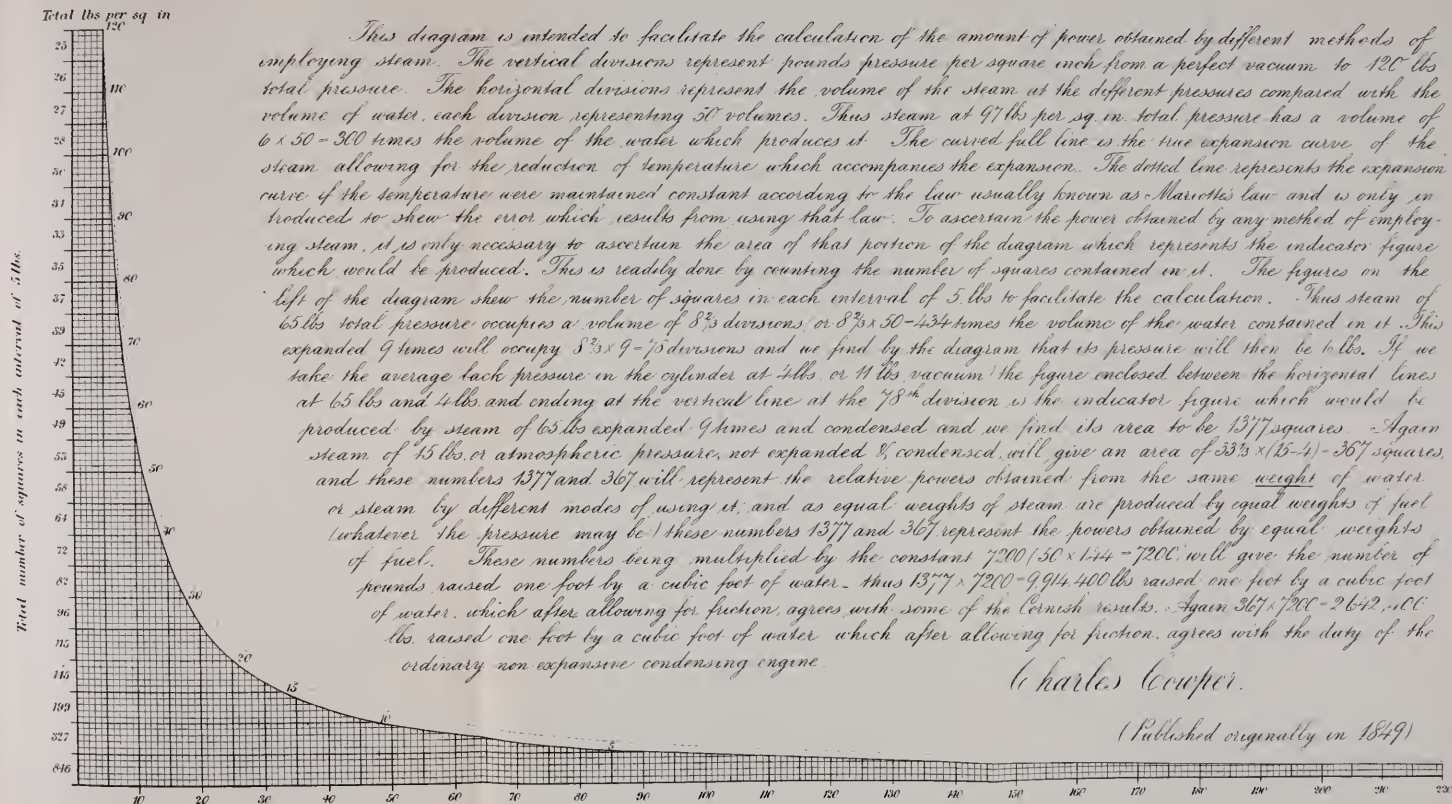 Total lbs per sq in
This diagram is intended to facilitate the calculation of the amount of power obtained by different methods of
employing steam. The vertical divisions represent pounds pressure per square inch from a perfect vacuum to 120 lbs
total pressure. The horizontal divisions represent the volume of the steam at the different pressures compared with the
volume of water, each division representing 50 volumes. Thus steam at 97 lbs per sq. in. total pressure has a volume of
6 x 50 = 300 times the volume of the water which produces it. The curved full line is the true expansion curve of the
steam allowing for the reduction of temperature which accompanies the expansion. The dotted line represents the expansion
curve if the temperature were maintained constant according to the law usually known as Mariotte's law and is only in
troduced to shew the error which results from using that law. To ascertain the power obtained by any method of employ-
ing steam, it is only necessary to ascertain the area of that portion of the diagram which represents the indicator figure
which would be produced. This is readily done by counting the number of squares contained in it. The figures on the
left of the diagram shew the number of squares in each interval of 5 lbs to facilitate the calculation. Thus steam of
65 lbs total pressure occupies a volume of 8 2/3 divisions, or 8 2/3 x 50 = 434 times the volume of the water contained in it. This
expanded 9 times will occupy 8 2/3 x 9 = 78 divisions and we find by the diagram that its pressure will then be 6 lbs. If we
take the average back pressure in the cylinder at 4 lbs. or 11 lbs vacuum the figure enclosed between the horizontal lines
at 65 lbs and 4 lbs. and ending at the vertical line at the 78th division is the indicator figure which would be
produced by steam of 65 lbs expanded 9 times and condensed and we find its area to be 1377 squares. Again
steam of 15 lbs. or atmospheric pressure, not expanded & condensed, will give an area of 33 1/3 x (15-4) = 367 squares,
and these numbers 1377 and 367 will represent the relative powers obtained from the same weight of water
or steam by different modes of using it; and as equal weights of steam are produced by equal weights of fuel
(whatever the pressure may be) these numbers 1377 and 367 represent the powers obtained by equal weights
of fuel. These numbers being multiplied by the constant 7200 (50 x 144 = 7200) will give the number of
pounds raised one foot by a cubic foot of water - thus 1377 x 7200 = 9,914,400 lbs raised one foot by a cubic foot
of water, which after allowing for friction, agrees with some of the Cornish results. Again 367 x 7200 = 2642,400
lbs. raised one foot by a cubic foot of water which after allowing for friction, agrees with the duty of the
ordinary non expansive condensing engine.
Charles Cowper.
(Published originally in 1849)
Total number of squares in each interval of 5 lbs.
25
26
27
28
30
31
33
35
37
39
42
45
49
53
58
64
72
82
96
115
145
199
327
846
120
110
100
90
80
70
60
50
40
30
20
15
10
5
10 20 30 40 50 60 70 80 90 100 110 120 130 140 150 160 170 180 190 200 210 220